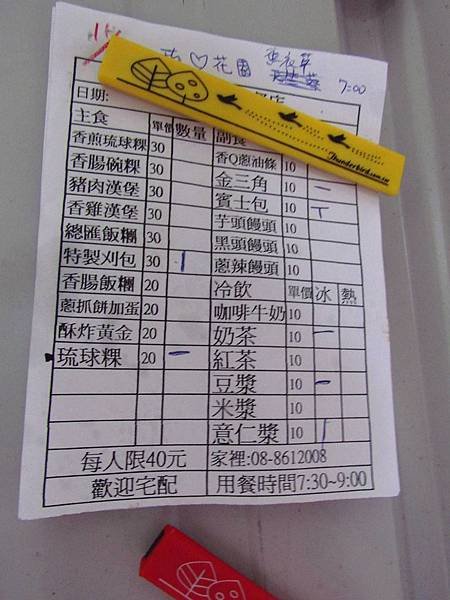 花園
7:00
Thunderbird.com.tw
日期:
主食 單價 數量 副食
香煎琉球粿 30 香Q蔥油條 10
香腸碗粿 30 金三角 10 一
豬肉漢堡 30 賓士包 10 丅
香雞漢堡 30 芋頭饅頭 10
總匯飯糰 30 黑頭饅頭 10
特製刈包 30 | 蔥辣饅頭 10
香腸飯糰 20 冷飲 單價 冰 熱
蔥抓餅加蛋 20 咖啡牛奶 10
酥炸黃金 20 奶茶 10 一
琉球粿 20 一 紅茶 10
豆漿 10 一
米漿 10
意仁漿 10 |
每人限40元 家裡:08-8612008
歡迎宅配 用餐時間7:30~9:00